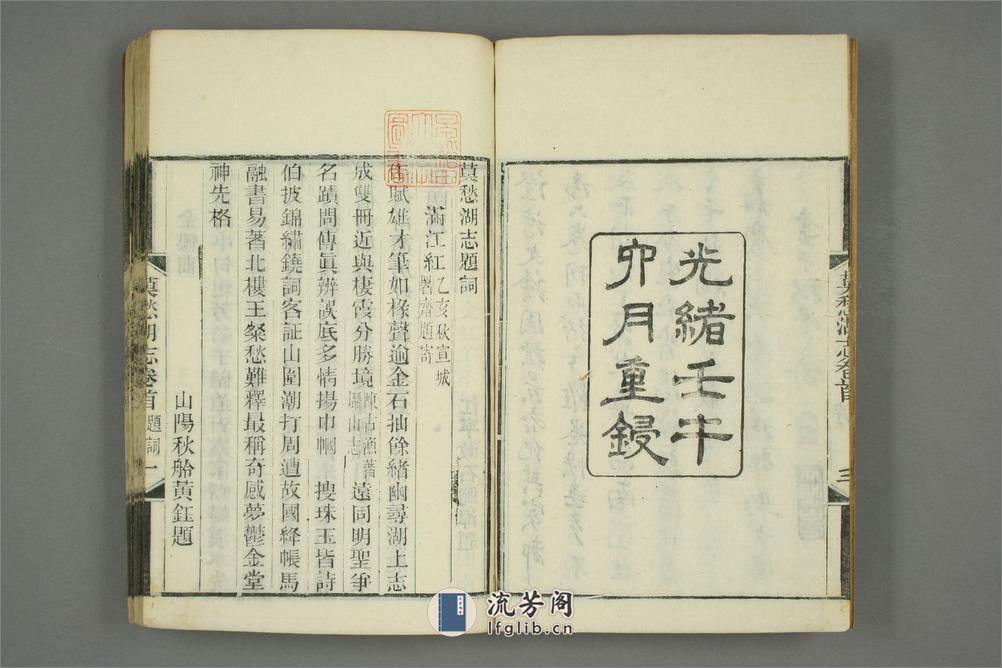 光緒壬午
卯月重鋟
莫愁湖志卷首
三
莫愁湖志題詞
滿江紅 乙亥秋宣城
署齋題寄
佳賦雄才筆如椽聲逾金石抽餘緒幽尋湖上志
成雙冊近與棲霞分勝境陳古漁著
攝山志遠同明聖爭
名蹟問傳眞辨誤底多情揚巾幗 搜珠玉皆詩
伯披錦繡鐃詞客証山圍潮打周遭故國絳帳馬
融書易著北樓王粲愁難釋最稱奇感夢鬱金堂
神先格
山陽秋舲黃鈺題
莫愁湖志卷首 題詞 一
流芳阁
lfglib.cn